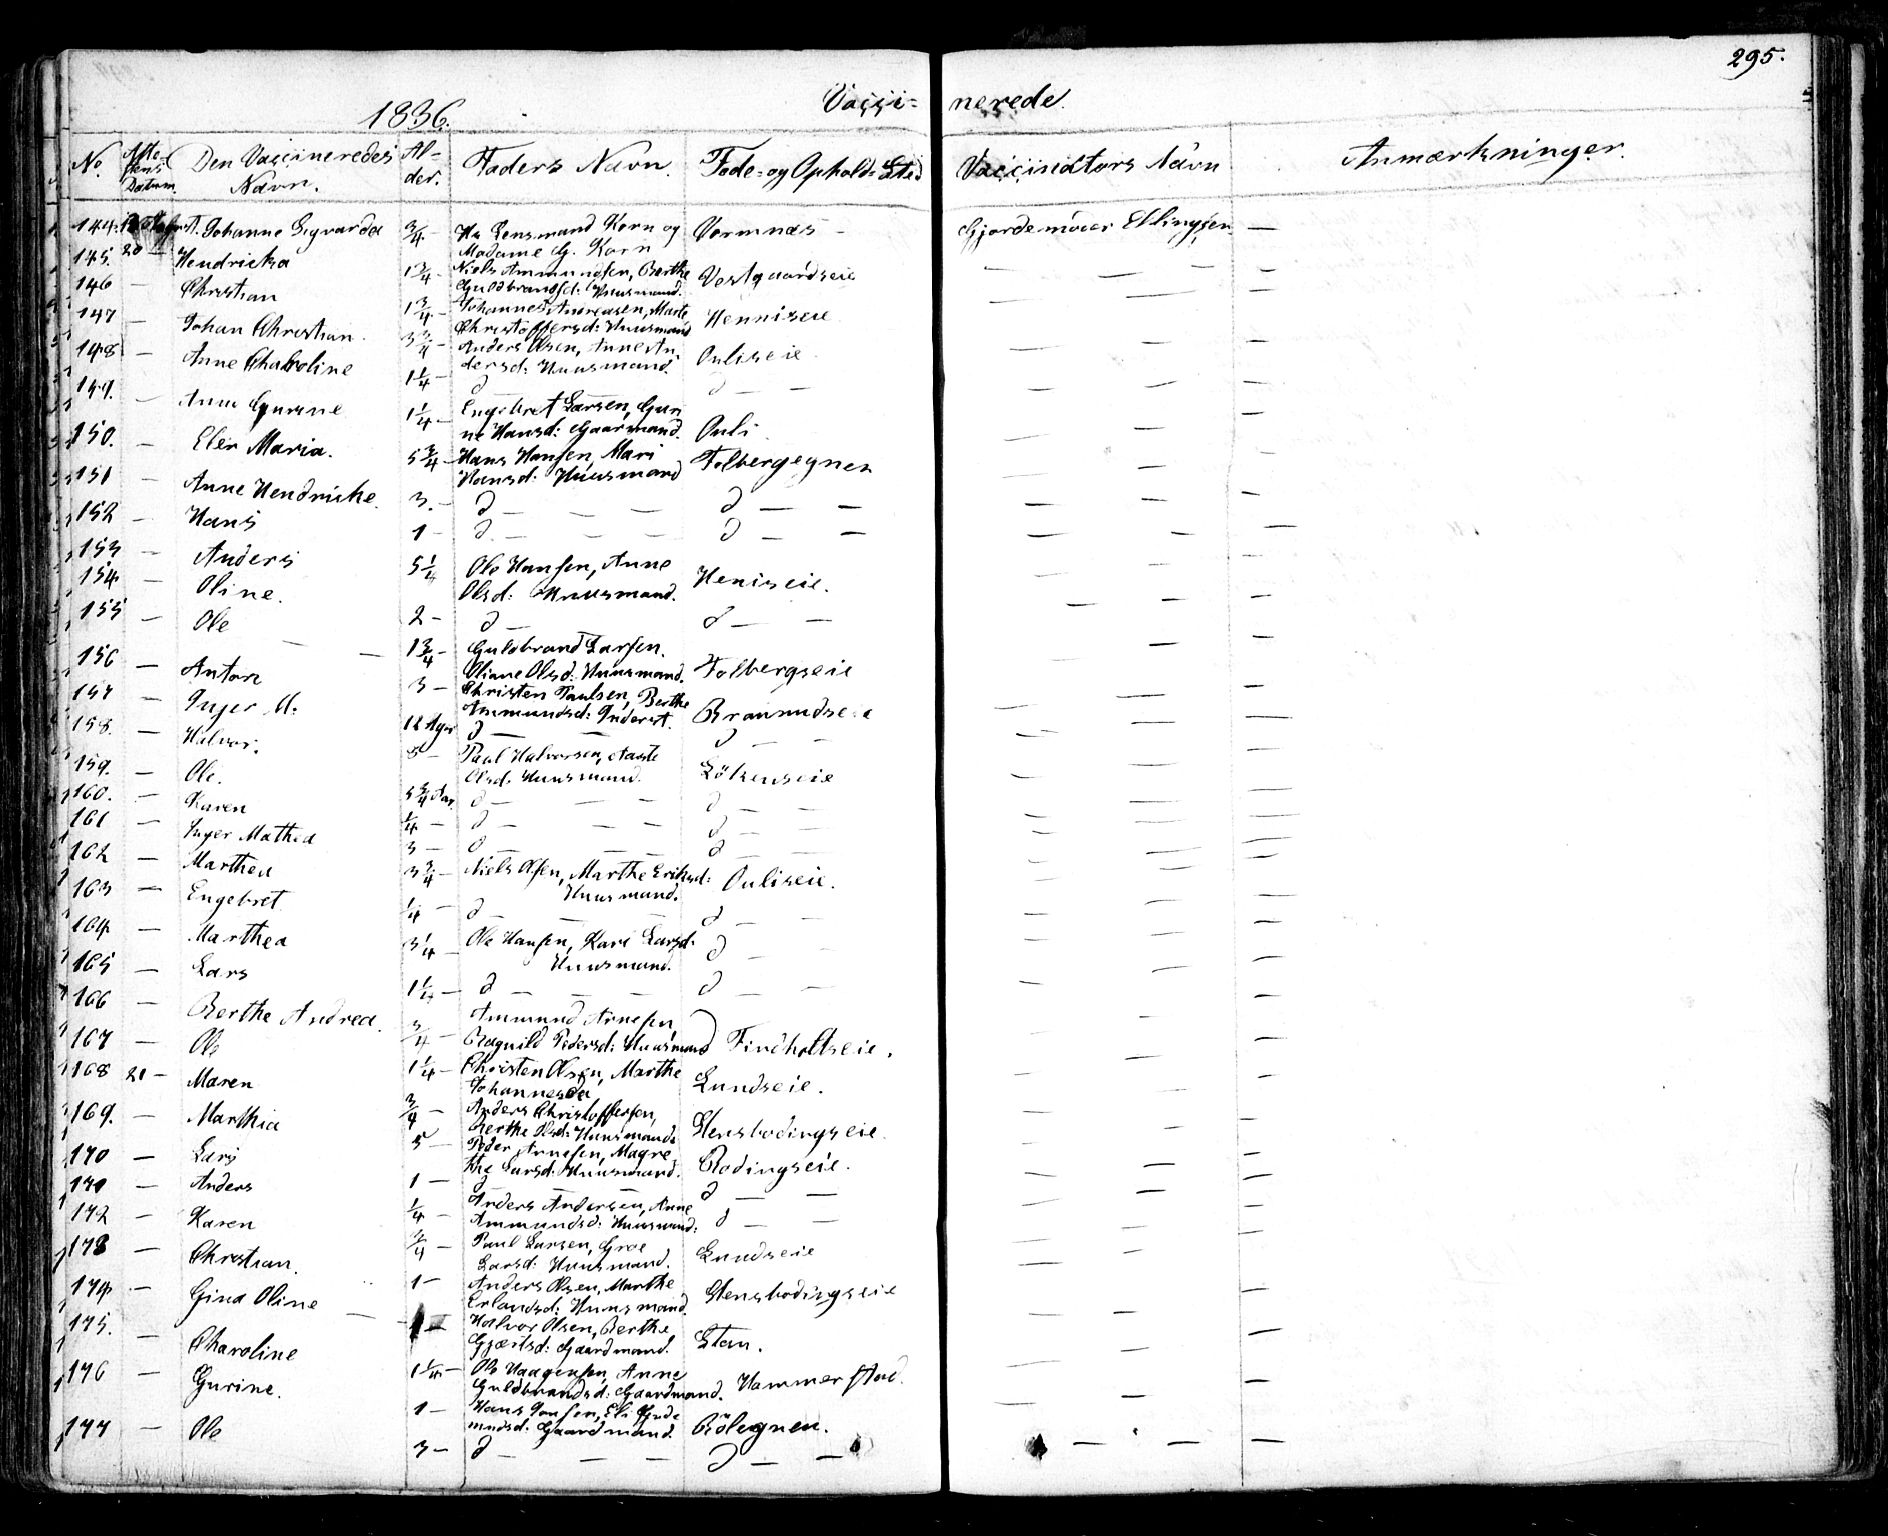 295.
1836. Vacci= nerede.
No. Atte stens Datum. Den Vaccineredes Navn. Al- der. Faders Navn. Føde= og Ophold= Sted Vaccinators Navn Anmærkninger.
144. Johanne Sigvarda 3/4 – Hr Lensmand Korn og Vormnæs – Gjordemoder Ellingsen –
145. 20 – Hendricka Madame G. Korn
1 3/4 – Niels Ammundsen, Berthe Vestgaardseie
146 – Christian Guldbrandsd: Huusmand.
1 3/4 – Johannes Andreasen, Marte Henniseie
147 – Johan Christian. Christoffersd: Huusmand
3 3/4 – Anders Olsen, Anne An- Ouliseie
148 – Anne Charoline dersd: Huusmand.
1 1/4 – d – – d – –
149. Anne Gurine 1 1/4 – Engebret Larsen, Gun
ne Hansd: Gaarmand. Ouli
150. – Elen Maria. 5 3/4 – Hans Hansen, Mari Folbergegnen
Hansd: Huusmand
151 – Anne Hendricke 3. – d – – – d – –
152 – Hans 1 – d. – – – d – –
153 – Anders 5 1/4 Ole Hansen, Anne Heniseie.
154 – Oline. Olsd: Huusmand.
155 – Ole 2 – d – d – –
1 3/4 – Guldbrand Larsen. Folbergseie
156 – Anton Oliane Olsd: Huusmand.
3 – Christen Paulsen, Berthe
157 – Inger M: Ammundsd: Inderst.
158. – Halvor. d – – d – –
5 – Paul Halvorsen, Løkenseie
159. – Ole. Olsd: Huusmand.
160. – Karen 5 3/4 Aar. d – – – d – –
161 – Inger Mathea 1/4 – d – – – d – –
162 – Marthea 3 – d – – – d – –
163 – Engebret 3 3/4 – Niels Olsen, Marthe Eriksd: Ouliseie.
Huusmand.
1/4 – d – – – d – –
164 – Marthea 3 1/4 – Ole Hansen, Kari Larsd: d – –
Huusmand.
165 – Lars 1 1/4 – d – – – d – –
166 – Berthe Andrea. 3/4 – Ammund Arnesen
167 – Ole Ragnild Pedersd: Huusmand Findholtseie.
168 21 – Maren 1 1/4 – Christen Olsen, Marthe Lundseie.
Johannesd,
169. – Marthia 3/4 – Anders Christoffersen, Stensbodingseie.
Berthe Olsd: Huusmand:
170 – Lars 5 – Peder Arnesen, Magre Rodingseie.
the Larsd: Huusmand.
171 – Anders 1 – d – – – d – –
172 – Karen 1/4 – Anders Andersen, Anne d – –
Ammundsd: Huusmand:
173 – Christian. 3/4 – Paul Larsen, Groe Lundseie
Larsd: Huusmand.
174 – Gina Oline 1 – Anders Olsen, Marthe Stensbodingseie
Erlandsd: Huusmand.
175. – Charoline 1 – Halvor Olsen, Berthe Stan.
Gjertsd: Gaardmand.
176 – Gurine. 1 1/4 – Ole Haagensen, Anne Hammerstad.
Guldbrandsd: Gaardmand.
177 – Ole 1 – Hans Jonsen, Eli Gude
mndsd: Gaardmand. Rölegnen.
3 – d – – – d – –